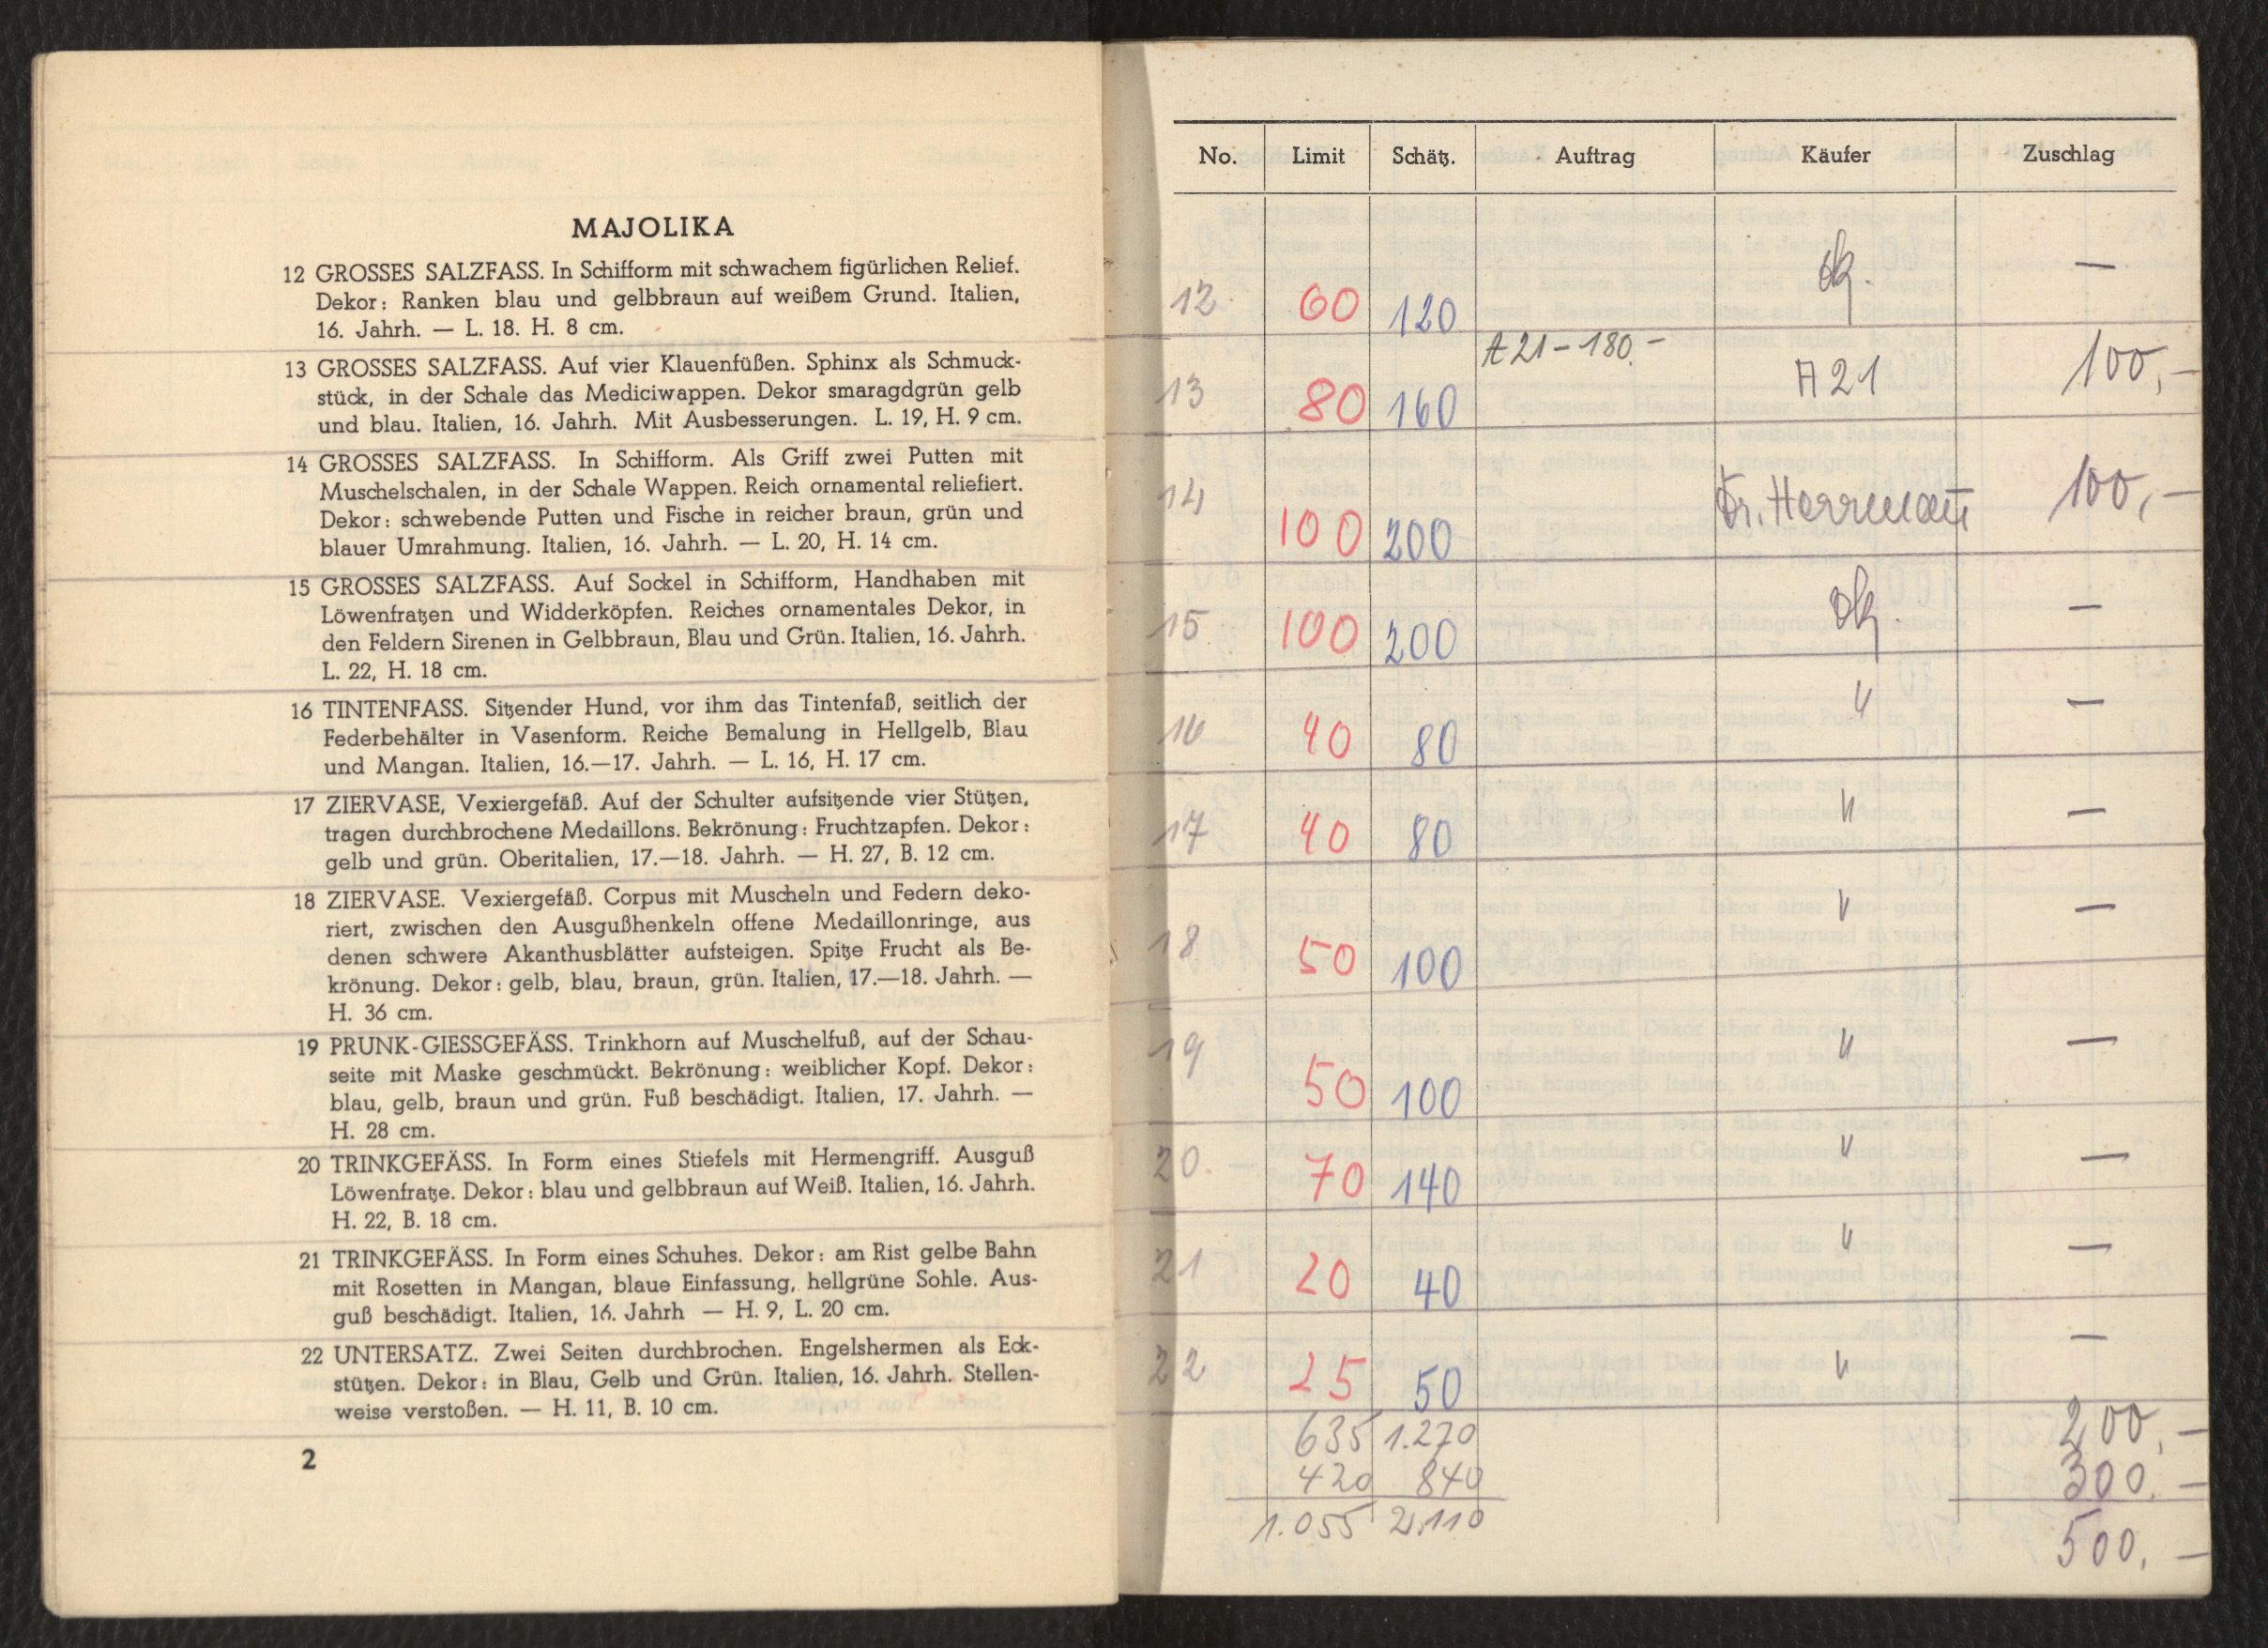 MAJOLIKA
12 GROSSES SALZFASS. In Schifform mit schwachem figürlichen Relief.
Dekor: Ranken blau und gelbbraun auf weißem Grund. Italien,
16. Jahrh. — L. 18. H. 8 cm.
13 GROSSES SALZFASS. Auf vier Klauenfüßen. Sphinx als Schmuck-
stück, in der Schale das Mediciwappen. Dekor smaragdgrün gelb
und blau. Italien, 16. Jahrh. Mit Ausbesserungen. L. 19, H. 9 cm.
14 GROSSES SALZFASS. In Schifform. Als Griff zwei Putten mit
Muschelschalen, in der Schale Wappen. Reich ornamental reliefiert.
Dekor: schwebende Putten und Fische in reicher braun, grün und
blauer Umrahmung. Italien, 16. Jahrh. — L. 20, H. 14 cm.
15 GROSSES SALZFASS. Auf Sockel in Schifform, Handhaben mit
Löwenfratzen und Widderköpfen. Reiches ornamentales Dekor, in
den Feldern Sirenen in Gelbbraun, Blau und Grün. Italien, 16. Jahrh.
L. 22, H. 18 cm.
16 TINTENFASS. Sitzender Hund, vor ihm das Tintenfaß, seitlich der
Federbehälter in Vasenform. Reiche Bemalung in Hellgelb, Blau
und Mangan. Italien, 16.—17. Jahrh. — L. 16, H. 17 cm.
17 ZIERVASE, Vexiergefäß. Auf der Schulter aufsitzende vier Stützen,
tragen durchbrochene Medaillons. Bekrönung: Fruchtzapfen. Dekor:
gelb und grün. Oberitalien, 17.—18. Jahrh. — H. 27, B. 12 cm.
18 ZIERVASE. Vexiergefäß. Corpus mit Muscheln und Federn deko-
riert, zwischen den Ausgußhenkeln offene Medaillonringe, aus
denen schwere Akanthusblätter aufsteigen. Spitze Frucht als Be-
krönung. Dekor: gelb, blau, braun, grün. Italien, 17.—18. Jahrh. —
H. 36 cm.
19 PRUNK-GIESSGEFÄSS. Trinkhorn auf Muschelfuß, auf der Schau-
seite mit Maske geschmückt. Bekrönung: weiblicher Kopf. Dekor:
blau, gelb, braun und grün. Fuß beschädigt. Italien, 17. Jahrh. —
H. 28 cm.
20 TRINKGEFÄSS. In Form eines Stiefels mit Hermengriff. Ausguß
Löwenfratze. Dekor: blau und gelbbraun auf Weiß. Italien, 16. Jahrh.
H. 22, B. 18 cm.
21 TRINKGEFÄSS. In Form eines Schuhes. Dekor: am Rist gelbe Bahn
mit Rosetten in Mangan, blaue Einfassung, hellgrüne Sohle. Aus-
guß beschädigt. Italien, 16. Jahrh — H. 9, L. 20 cm.
22 UNTERSATZ. Zwei Seiten durchbrochen. Engelshermen als Eck-
stützen. Dekor: in Blau, Gelb und Grün. Italien, 16. Jahrh. Stellen-
weise verstoßen. — H. 11, B. 10 cm.
2
No. Limit Schätz. Auftrag Käufer Zuschlag
12 60 120 —
A21-180.-
13 80 160 A21 100,-
14 100 200 Dr. Herrmann 100,-
15 100 200 —
16 40 80 " —
17 40 80 " —
18 50 100 " —
19 50 100 " —
20. 70 140 " —
21 20 40 " —
22 25 50 " —
635 1.270 200,-
420 840 300.-
1.055 2.110 500,-